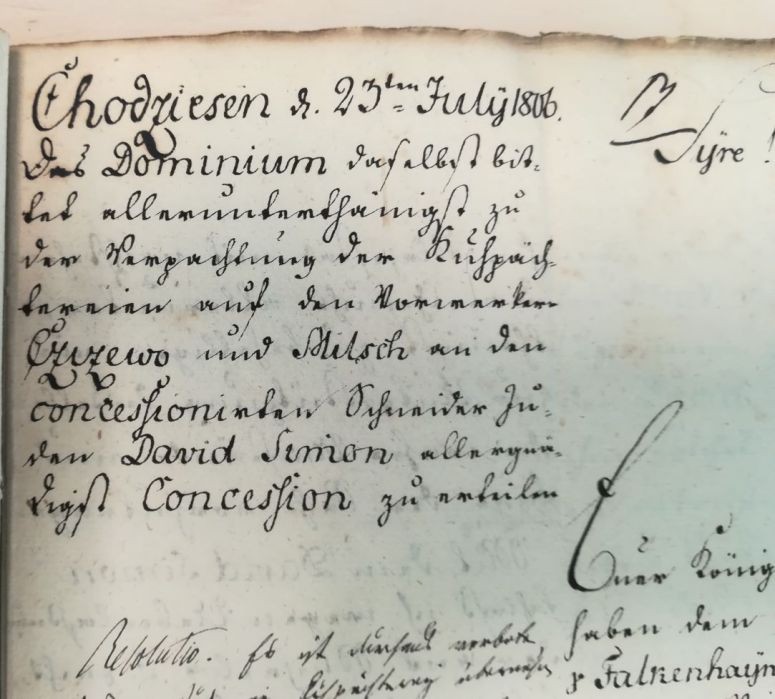 Chodziesen d. 23ten July 1806.
Das Dominium daselbst bit-
tet allerunterthänigst zu
der Verpachtung der Kuhpäch-
tereien auf den Vorwerker
Czyzewo und Milsch an den
concessionirten Schneider Ju-
den David Simon allergnä-
digst Concession zu erteilen
Syre
Euer König
haben dem
Falkenhayn
Resolutio. Es ist durchaus verboten